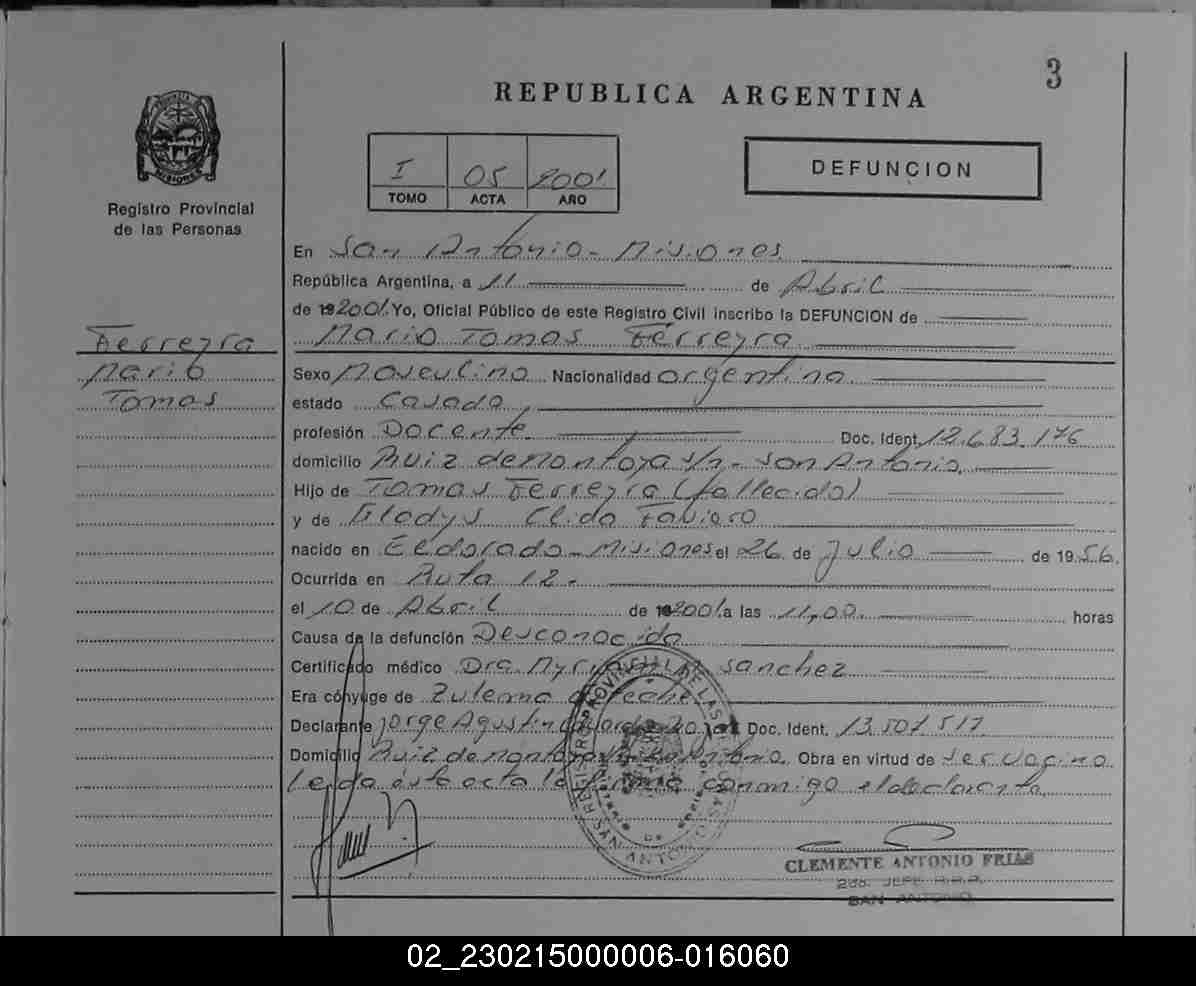 3
REPUBLICA ARGENTINA
PROVINCIA DE MISIONES
Registro Provincial
de las Personas
I 05 2001
TOMO ACTA AÑO
DEFUNCION
En San Antonio - Misiones
República Argentina, a 11 de Abril
de 192001. Yo, Oficial Público de este Registro Civil inscribo la DEFUNCION de
Mario Tomas Ferreyra
Ferreyra
Mario
Tomas
Sexo Masculino Nacionalidad argentina
estado Casado,
profesión Docente Doc. Ident. 12.683.176
domicilio Ruiz de Montoya s/n - San Antonio.
Hijo de Tomas Ferreyra (fallecido)
y de Gladys Elida
nacido en Eldorado - Misiones el 26 de Julio de 1956.
Ocurrida en Ruta 12.
el 10 de Abril de 192001 a las 11,00 horas
Causa de la defunción Desconocida
Certificado médico Dra. Myriam Sanchez
Era cónyuge de Zulema
Declarante Jorge Agustin Doc. Ident. 13.507.517
Domicilio Ruiz de Montoya San Antonio. Obra en virtud de ser vecino
Leida esta acta la firma conmigo el declarante.
REGISTRO PROVINCIAL DE LAS
SAN ANTONIO
CLEMENTE ANTONIO FRIAS
2do. JEFE R.P.P.
SAN ANTONIO
02_230215000006-016060